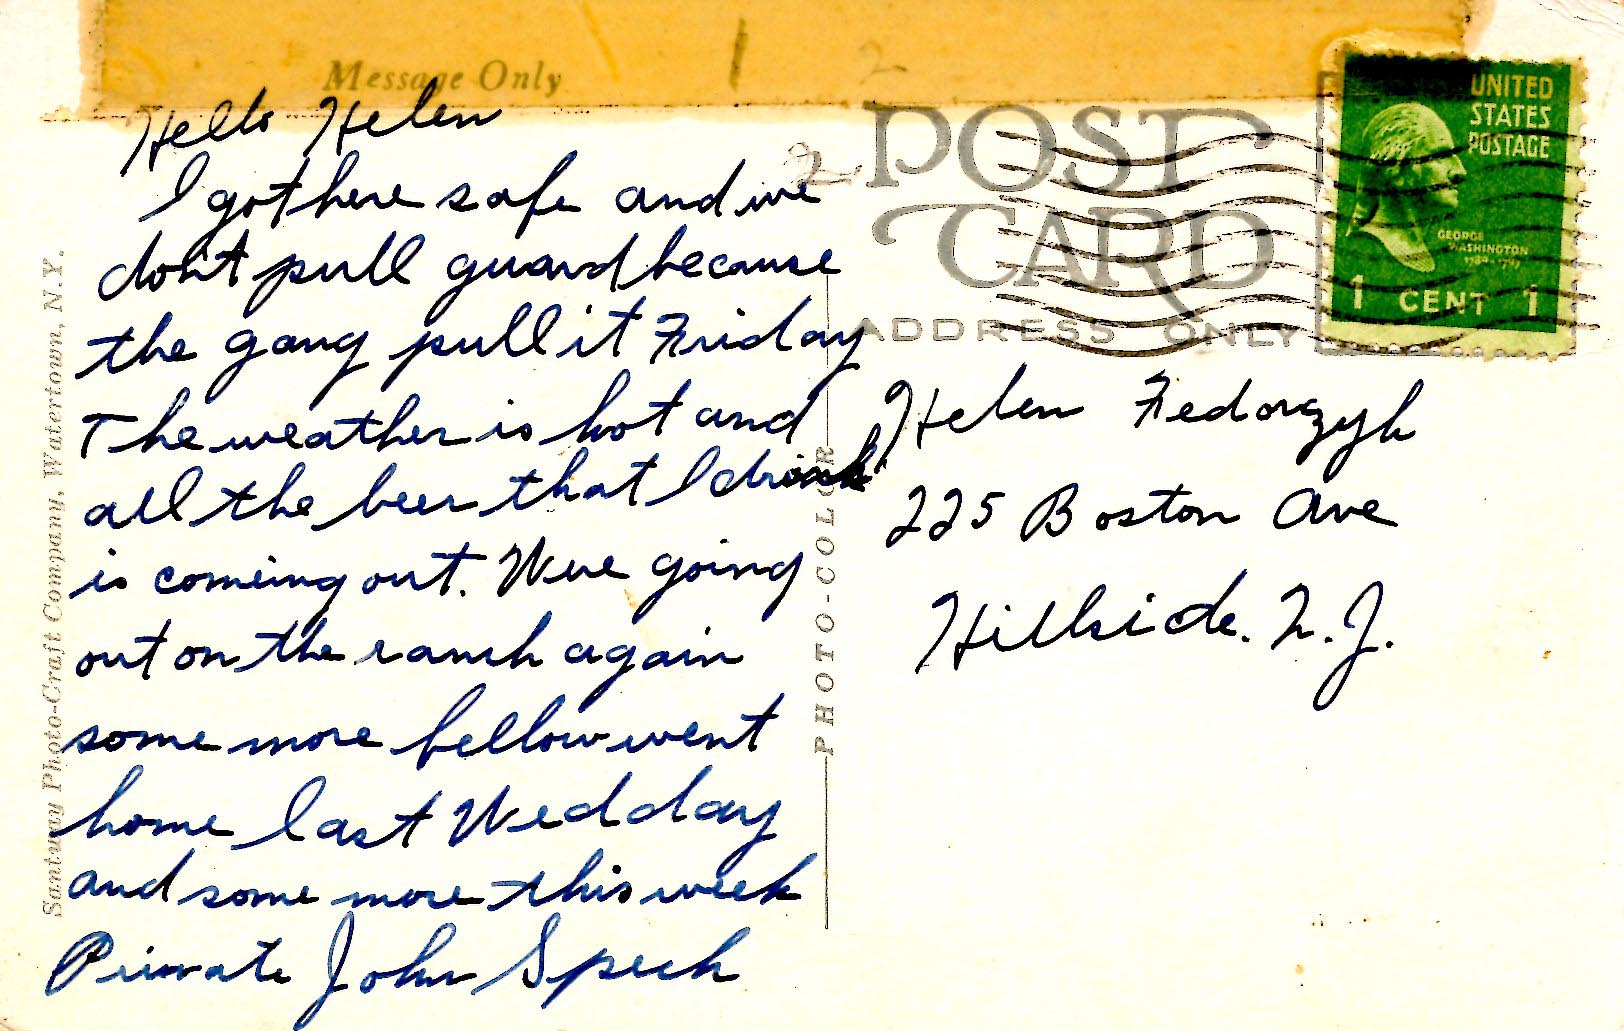 Message Only
Hello Helen
I got here safe and we
don't pull guard because
the gang pull it Friday
The weather is hot and
all the beer that I drink
is comeing out. Were going
out on the ranch again
some more fellow went
home last Wedday
and some more this week
Private John Spech
Santway Photo-Craft Company, Watertown, N.Y.
PHOTO-COLOR
1 2
2
POST
CARD
ADDRESS ONLY
UNITED
STATES
POSTAGE
GEORGE
WASHINGTON
1 CENT 1
Helen Fedorzyk
225 Boston Ave
Hillside. N.J.